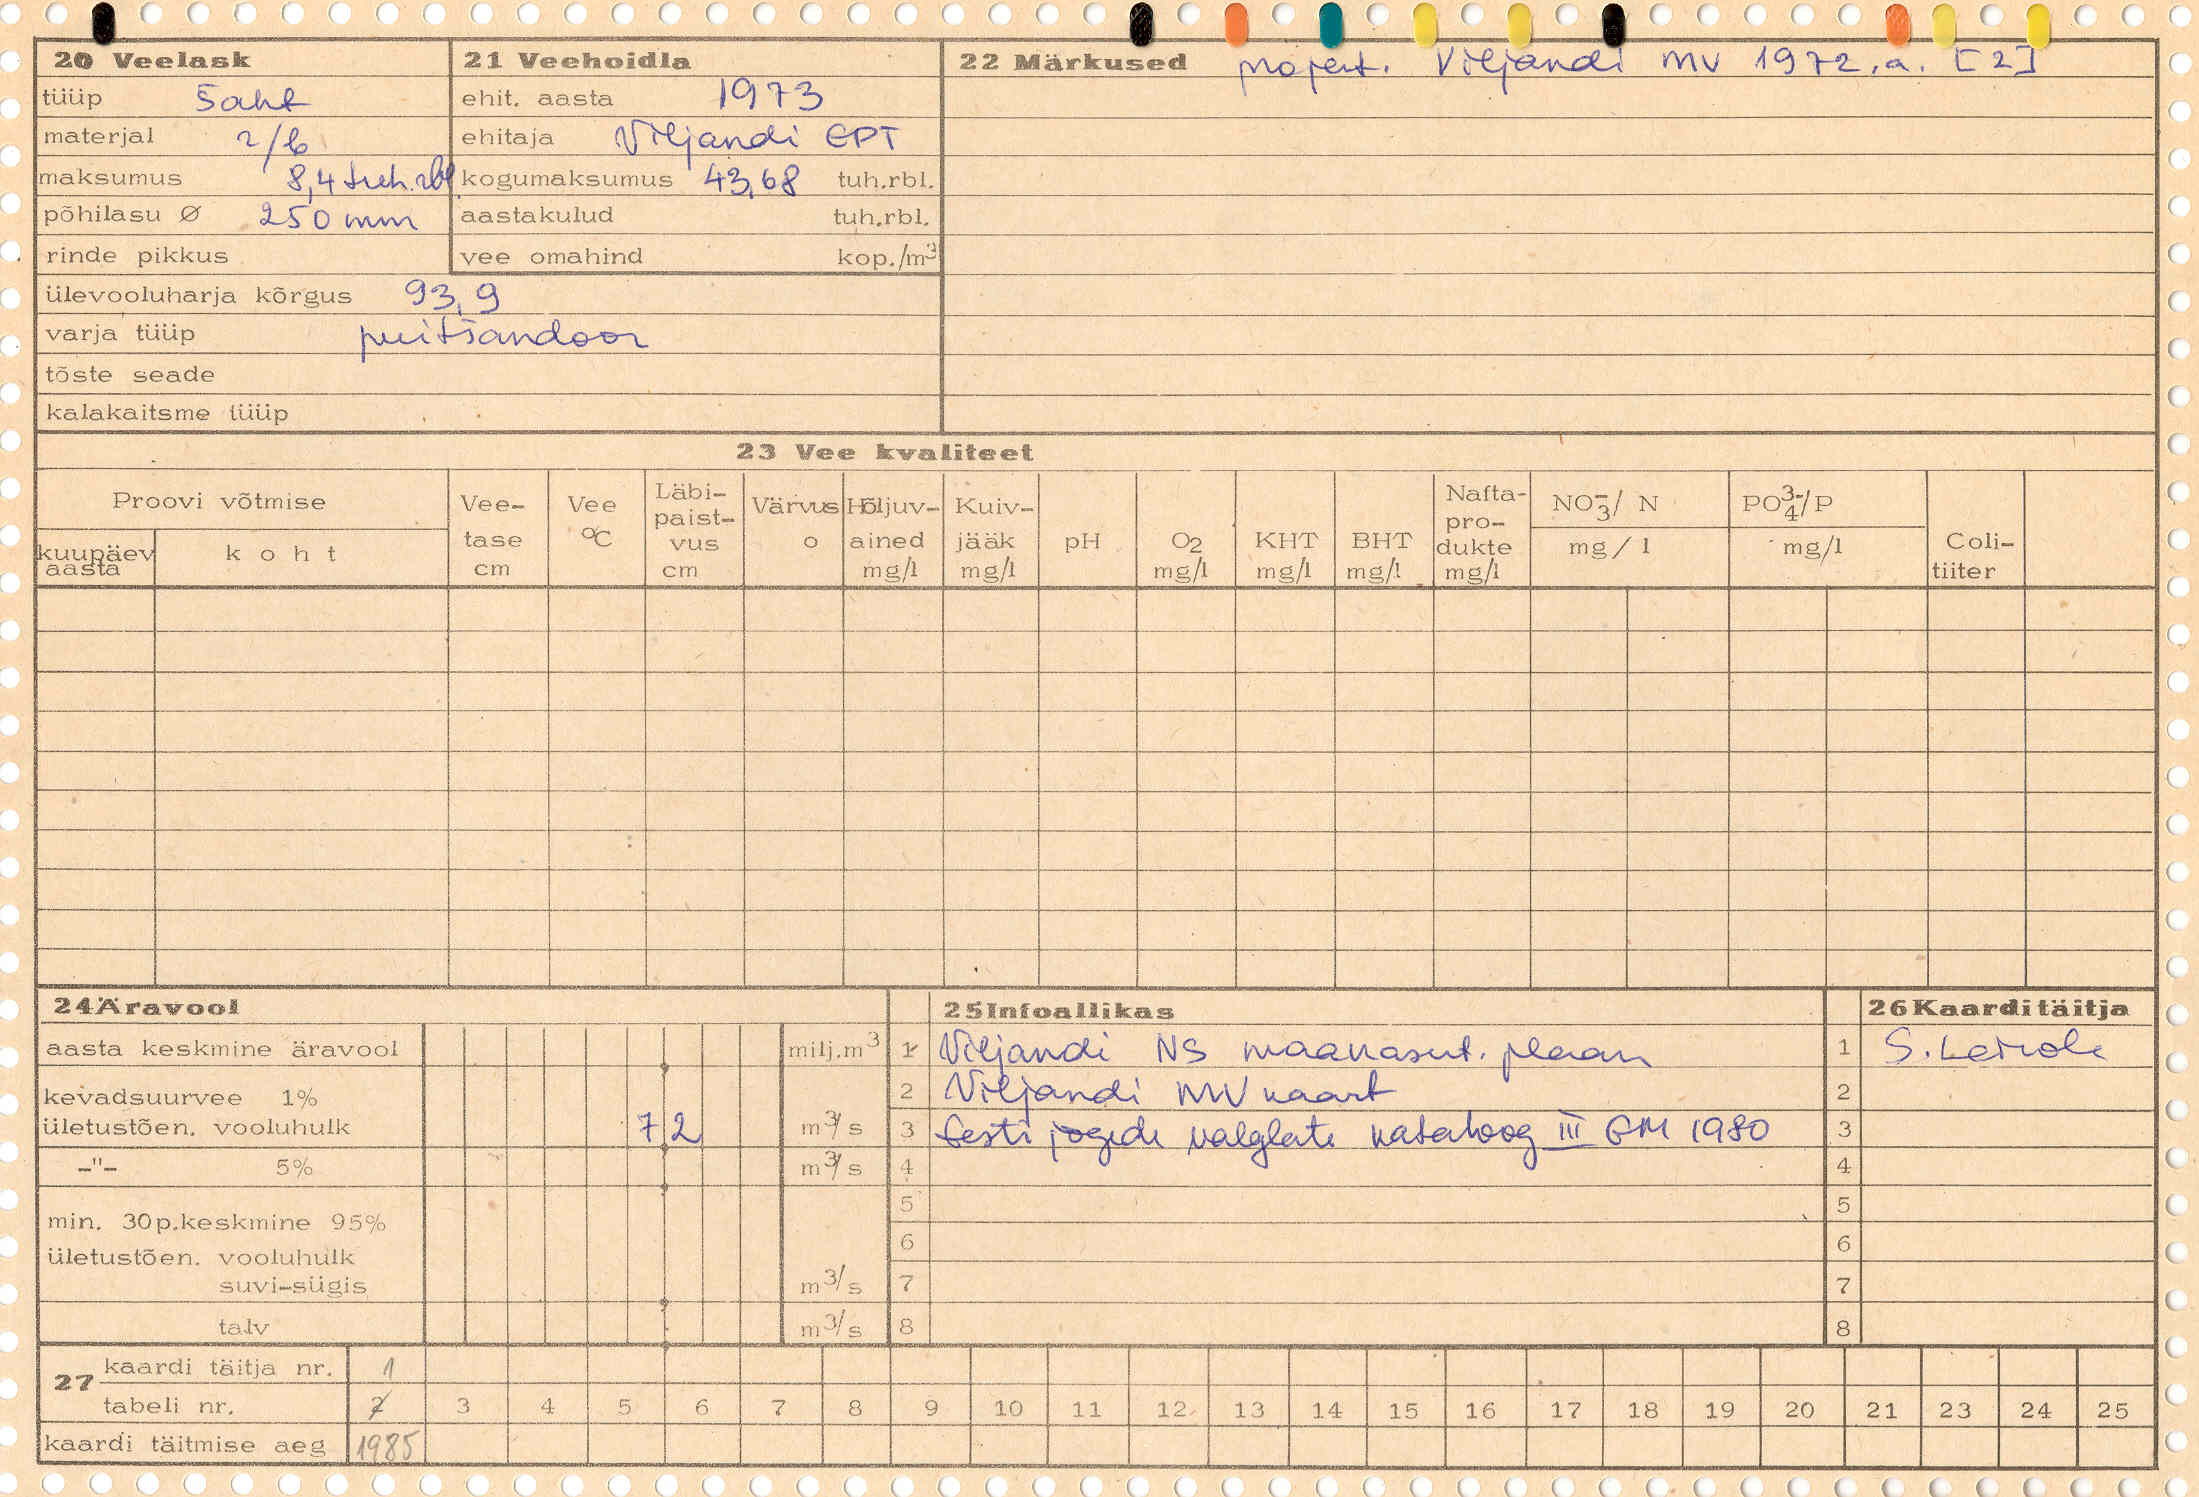 20 Veelask
tüüp šaht
materjal r/b
maksumus 8,4 tuh.rbl
põhilasu Ø 250 mm
rinde pikkus
ülevooluharja kõrgus 93,9
varja tüüp puitšandoor
tõste seade
kalakaitsme tüüp
21 Veehoidla
ehit. aasta 1973
ehitaja Viljandi EPT
kogumaksumus 43,68 tuh.rbl.
aastakulud tuh.rbl.
vee omahind kop./m³
22 Märkused projekt. Viljandi MV 1972.a. [2]
23 Vee kvaliteet
Proovi võtmise
kuupäev aasta
koht
Vee-
tase
cm
Vee
°C
Läbi-
paist-
vus
cm
Värvus
o
Hõljuv-
ained
mg/l
Kuiv-
jääk
mg/l
pH
O2
mg/l
KHT
mg/l
BHT
mg/l
Nafta-
pro-
dukte
mg/l
NO₃⁻/ N
mg/l
PO₄³⁻/P
mg/l
Coli-
tiiter
24 Äravool
aasta keskmine äravool milj.m³
kevadsuurvee 1%
ületustõen. vooluhulk 7 2 m³/s
-"- 5% m³/s
min. 30p.keskmine 95%
ületustõen. vooluhulk
suvi-sügis m³/s
talv m³/s
25 Infoallikas
1 Viljandi NS maakasut. plaan
2 Viljandi MV kaart
3 Eesti jõgede valglate kataloog III EM 1980
4
5
6
7
8
26 Kaarditäitja
1 S.
2
3
4
5
6
7
8
27
kaardi täitja nr. 1
tabeli nr. 2 3 4 5 6 7 8 9 10 11 12 13 14 15 16 17 18 19 20 21 23 24 25
kaardi täitmise aeg 1985